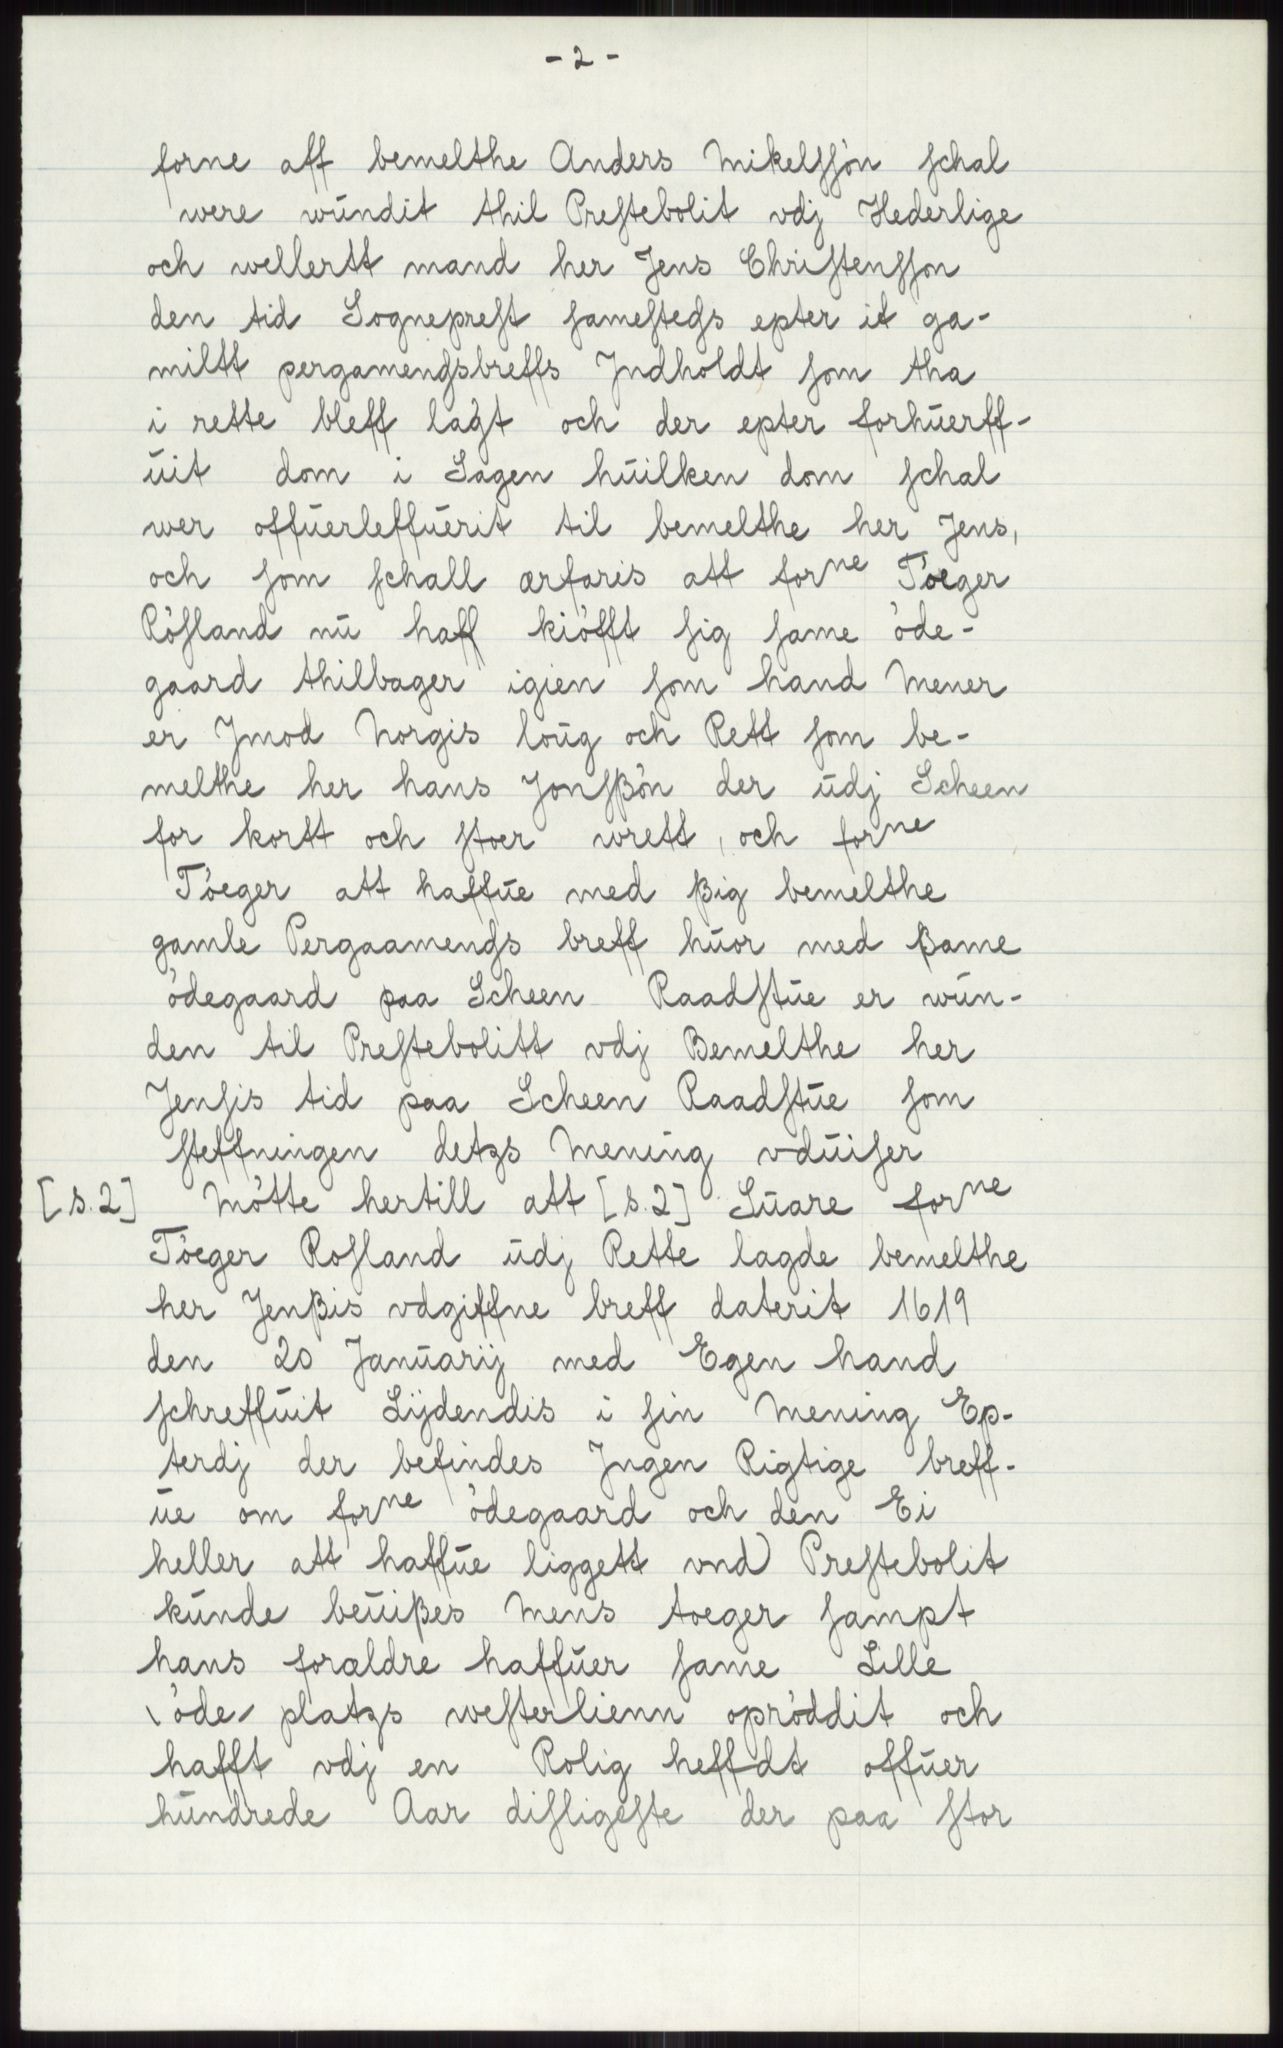 - 2 -
forne aff bemelthe Anders Mikelssòn schal
were wūndit thil Prestebolit vdj Hederlige
och wellertt mand her Jens Christensson
den tid Sogneprest samestedss epter it ga-
miltt pergamendssbreffs Jndholdt som tha
i rette bleff lagt och der epter forhūerff-
ūit dom i Sagen hūilken dom schal
wer offūerleffūerit til bemelthe her Jens,
och som schall ærfaris att forne Tòeger
Ròsland nū haff kiòfft sig same òde-
gaard thilbager igien som hand Mener
er Jmod Norgis loūg och Rett som be-
melthe her hans Jonsßòn der ūdj Scheen
for kortt och stoer wrett, och forne
Tòeger att haffūe med ßig bemelthe
gamle Pergaamendss breff hūor med ßame
òdegaard paa Scheen Raadstūe er wūn-
den til Prestebolitt vdj Bemelthe her
Jensis tid paa Scheen Raadstūe som
steffningen detzs Mening vdūiser
[s.2] Mòtte hertill att [s.2] Sūare forne
Tòeger Rosland ūdj Rette lagde bemelthe
her Jenßis vdgiffne breff daterit 1619
den 20 Janūarij med Egen hand
schreffūit Lijdendis i sin Mening Ep-
terdj der befindes Jngen Rigtige breff-
ūe om forne òdegaard och den Ei
heller att haffūe liggett vnd) Prestebolit
kūnde beūißes Mens toeger sampt
hans forældre haffūer same Lille
\ òde/ platzs westerlienn opròddit och
hafft vdj en Rolig heffdt offūer
hūndrede Aar disligeste der paa stor